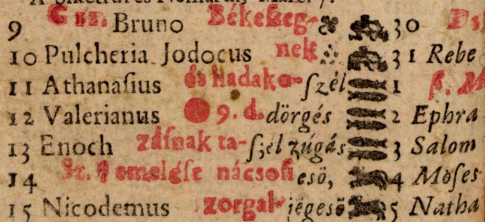 9 Bruno Békesseg- 30
10 Pulcheria Jodocus nek 31 Rebe
11 Athanasius és hadako- szél 1
12 Valerianus 9. d. dörgés 2 Ephra
13 Enoch zásnak ta- szél zúgás 3 Salom
14 esö, 4 Moses
15 Nicodemus zorgal- jégesö 5 Natha